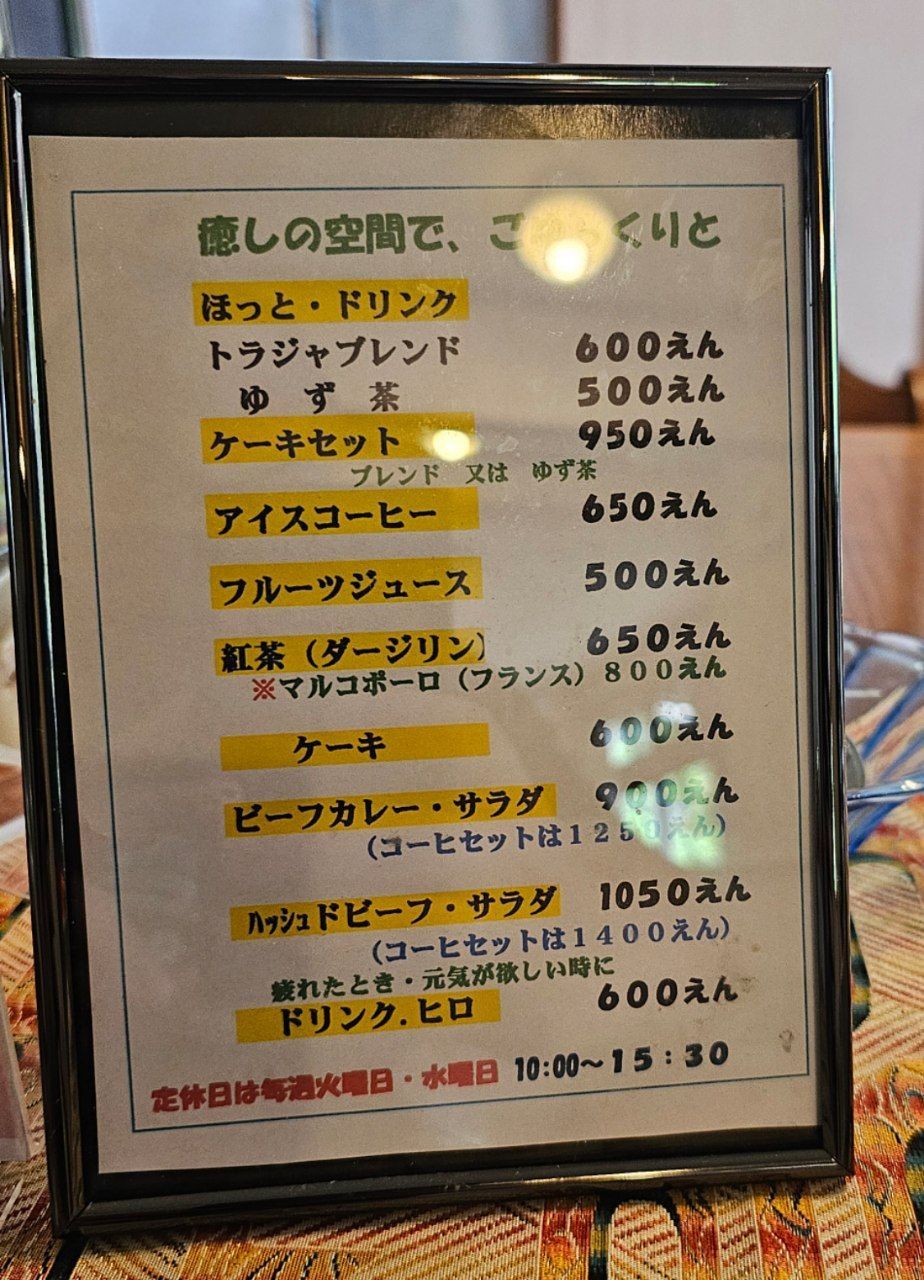 癒しの空間で、ご くりと
ほっと・ドリンク
トラジャブレンド 600えん
ゆ ず 茶 500えん
ケーキセット 950えん
ブレンド 又は ゆず茶
アイスコーヒー 650えん
フルーツジュース 500えん
紅茶（ダージリン） 650えん
※マルコポーロ（フランス）８００えん
ケーキ 600えん
ビーフカレー・サラダ 900えん
（コーヒセットは１２５０えん）
ﾊｯｼｭドビーフ・サラダ 1050えん
（コーヒセットは１４００えん）
疲れたとき・元気が欲しい時に
ドリンク.ヒロ 600えん
定休日は毎週火曜日・水曜日 10:00～１５：３０